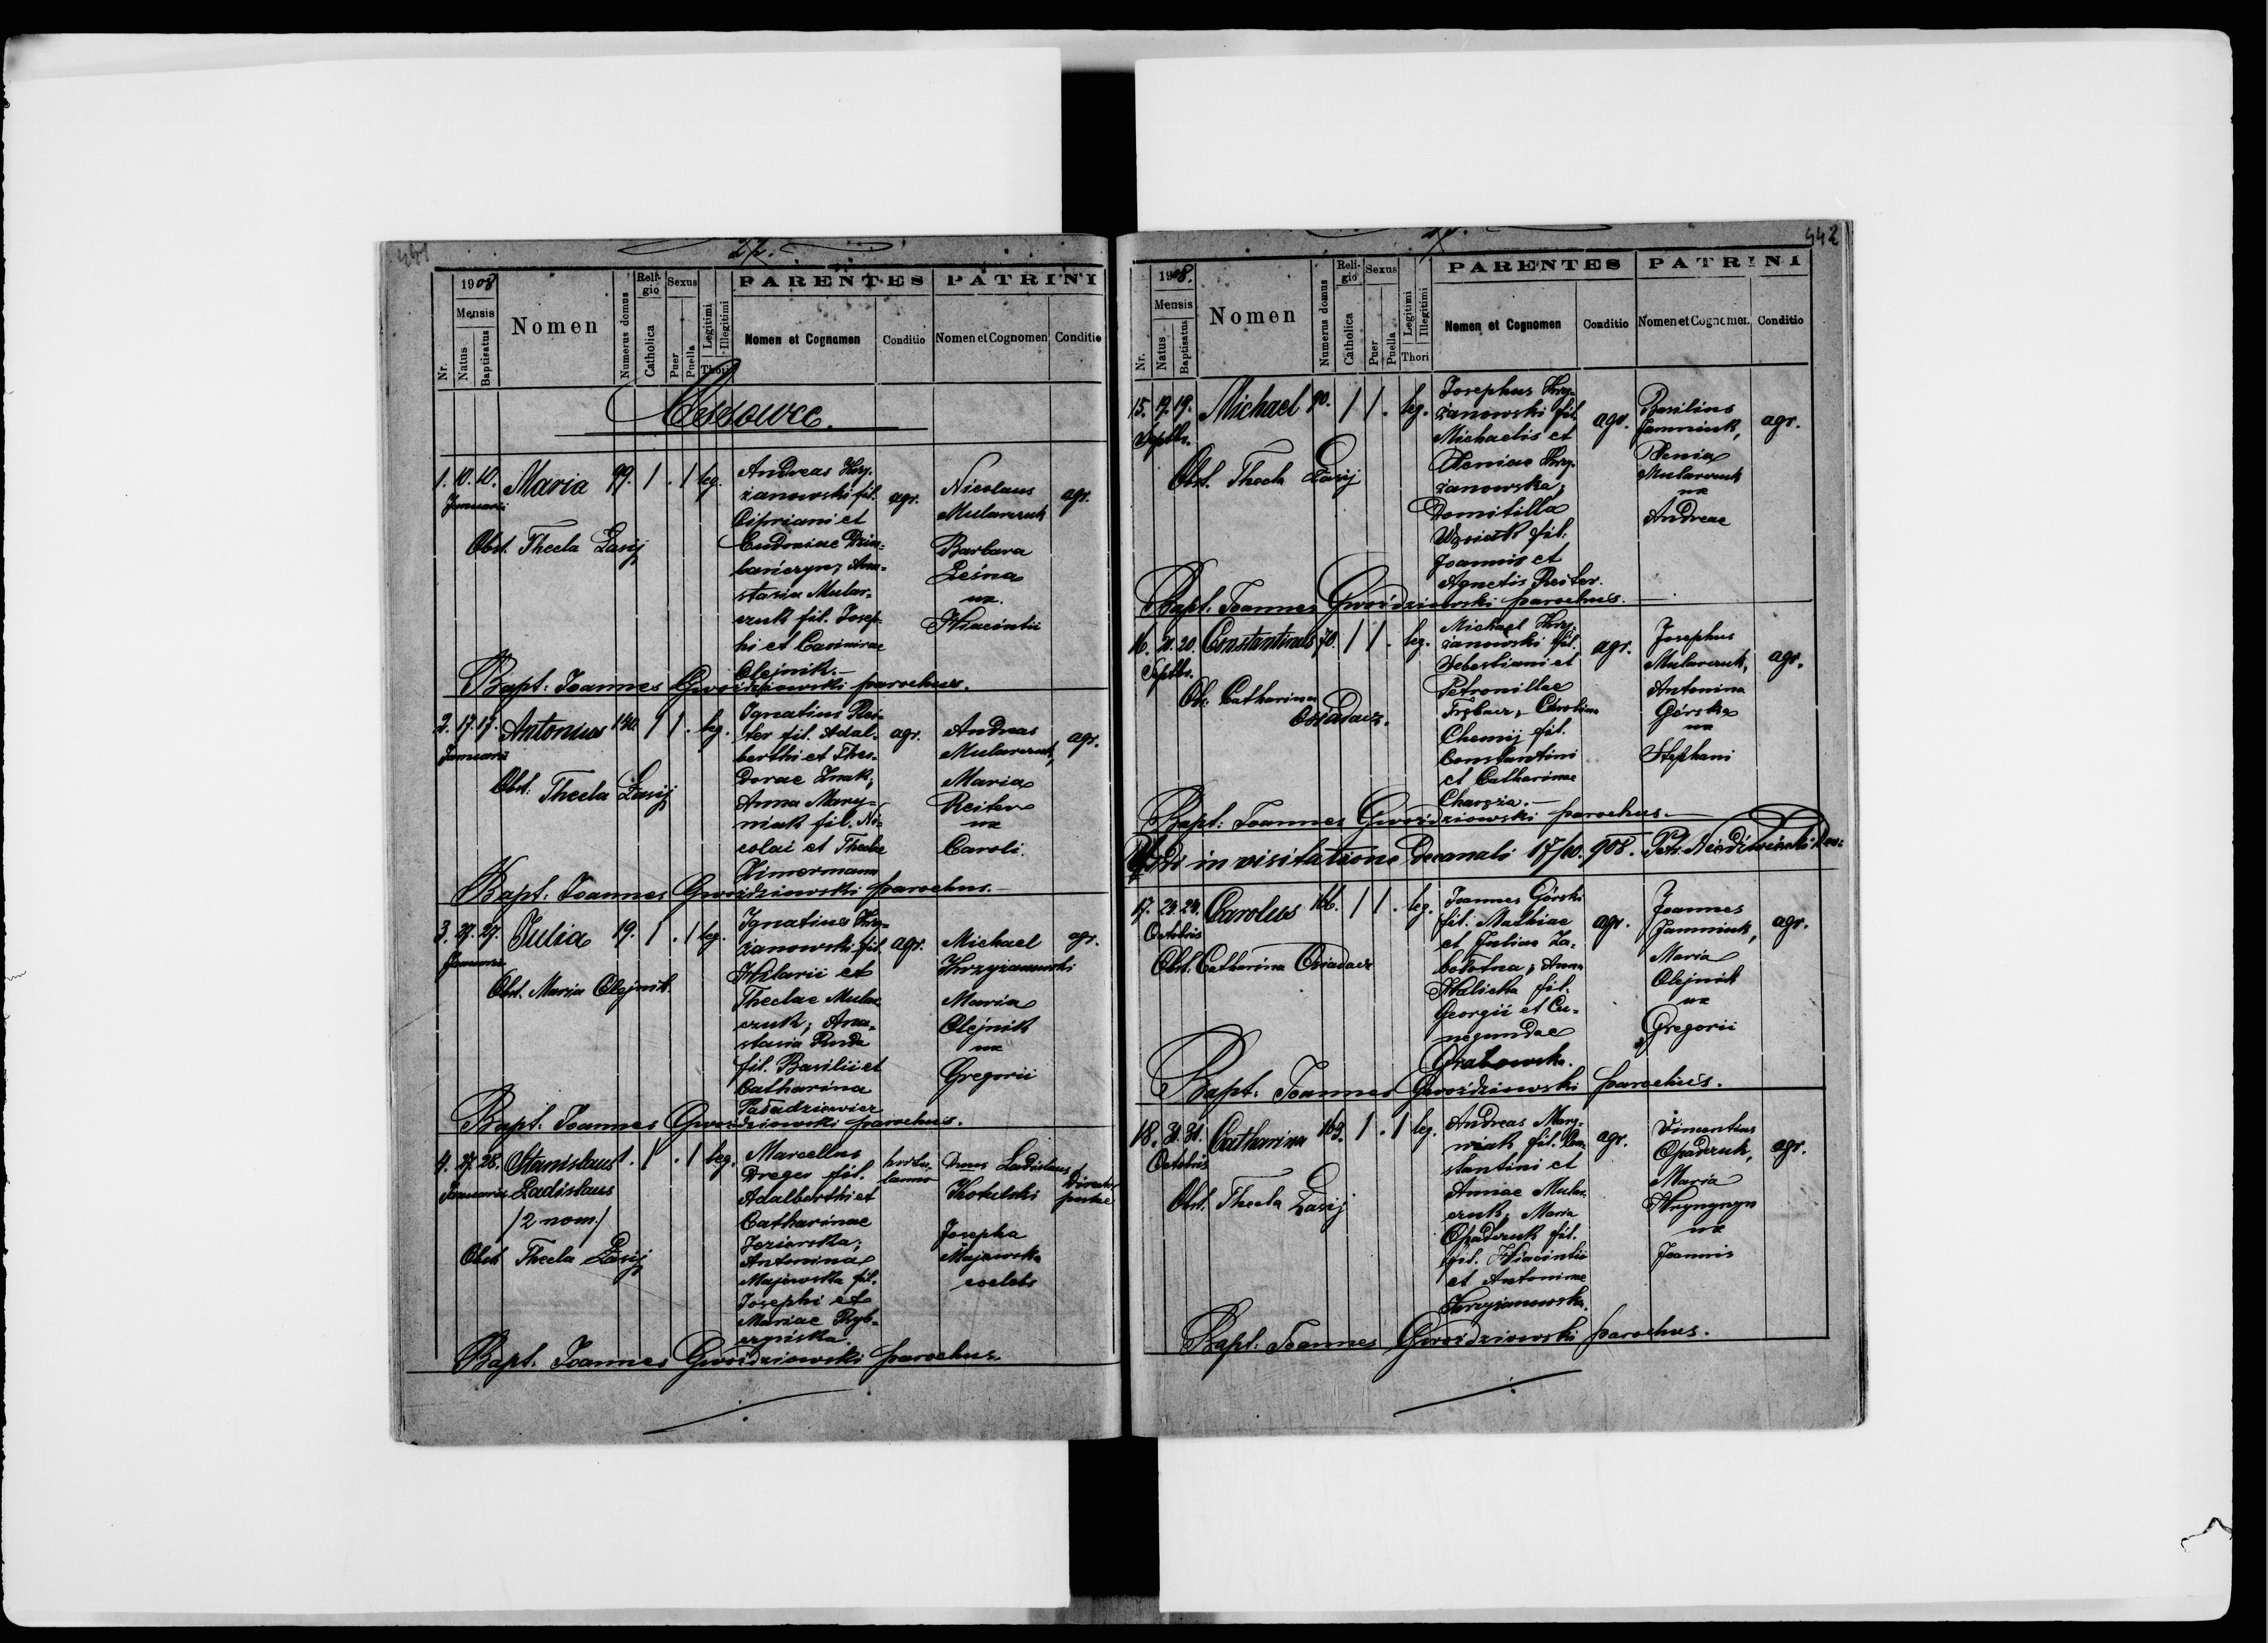 441
1908
Mensis
Nr.
Natus
Baptisatus
Nomen
Numerus domus
Religio
Catholica
Sexus
Puer
Puella
Legitimi
Illegitimi
Thori
PARENTES
Nomen et Cognomen
Conditio
PATRINI
Nomen et Cognomen
Conditio
1. 10. 10. Januarii
Maria 99. 1 . 1 leg.
Obst. Thecla Łasij
Andreas Krzy-
żanowski fil.
Cipriani et
Eudoxiae Dzia-
banczyn; Ana-
stasia Mular-
czuk fil. Josep-
hi et Casimirae
Olejnik.-
agr.
Nicolaus
Mularczuk
Barbara
Leśna
ux.
Hiacintii
agr.
Bapt. Joannes Gwoździowski parochus.
2. 17. 17. Januarii
Antonius 140. 1 1 . leg.
Obst. Thecla Łasij
Ignatius Rei-
ter fil. Adal-
berthi et Theo-
dorae Znak;
Anna Mary-
niak fil. Ni-
colai et Theclae
Zimermann
agr.
Andreas
Mularczuk,
Maria
Reiter
ux
Caroli.
agr.
Bapt. Joannes Gwoździowski parochus.-
3. 27. 27. Januarii
Julia 19. 1 . 1 leg.
Obst. Maria Olejnik.
Ignatius Krzy-
żanowski fil.
Hilarii et
Theclae Mular-
czuk; Ana-
stasia Ruda
fil. Basilii et
Catharina
agr.
Michael
Krzyżanowski
Maria
Olejnik
ux
Gregorii
agr.
Bapt. Joannes Gwoździowski parochus.
4. 27. 28. Januarii
Stanislaus 1. 1 . 1 leg.
Ladislaus
/2 nom./
Obst. Thecla Łasij
Marcellus
Dreger fil.
Adalberthi et
Catharinae
Jezierska;
Antonina
Majewska fil.
Josephi et
Mariae Ryb-
czyńska.
hortu-
lanus
Dnus Ladislaus
Kotulski
Josepha
Majewska
coelebs
Director
Bapt. Joannes Gwoździowski parochus.
442
1908.
Mensis
Nr.
Natus
Baptisatus
Nomen
Numerus domus
Religio
Catholica
Sexus
Puer
Puella
Legitimi
Illegitimi
Thori
PARENTES
Nomen et Cognomen
Conditio
PATRINI
Nomen et Cognomen
Conditio
15. 19. 19. Septbr.
Michael 90. 1 1 . leg.
Obst. Thecla Łasij
Josephus Krzy-
żanowski fil.
Michaelis et
Xeniae Krzy-
żanowska;
Domitilla
Woźniak fil.
Joannis et
Agnetis Reiter.
agr.
Basilius
Jamniuk,
Xenia
Mularczuk
ux
Andreae
agr.
Bapt. Joannes Gwoździowski parochus.
16. 20. 20. Septbr.
Constantinus 70. 1 1 . leg.
Ob. Catharina
Osiadacz.
Michael Krzy-
żanowski fil.
Sebastiani et
Petronillae
Trębacz, Carolina
Chomij fil.
Constantini
et Catharinae
agr.
Josephus
Mularczuk,
Antonina
Górska
ux
Stephani
agr.
Bapt. Joannes Gwoździowski parochus.-
Vidi in visitatione Decanali 17/10. 908.
17. 24. 24. Octobris
Carolus 166. 1 1 . leg.
Obst. Catharina Osiadacz
Joannes Górski
fil. Mathiae
et Juliae Za-
bołotna; Anna
Halicka fil.
Georgii et Cu-
negundae
Grabowska.
agr.
Joannes
Jamniuk,
Maria
Olejnik
ux
Gregorii
agr.
Bapt. Joannes Gwoździowski parochus.
18. 31. 31. Octobris
Catharina 163. 1 . 1 leg.
Obst. Thecla Łasij
Andreas Mary-
niak fil. Con-
stantini et
Annae Mular-
czuk; Maria
Opadczuk fil.
fil. Hiacintii
et Antoninae
Krzyżanowska.
agr.
Vincentius
Opadczuk,
Maria
ux
Joannis
agr.
Bapt. Joannes Gwoździowski parochus.